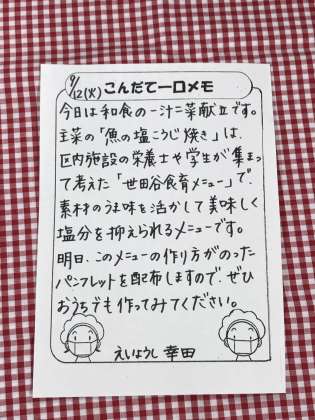 9/12(火) こんだて一口メモ
今日は和食の一汁二菜献立です。
主菜の「魚の塩こうじ焼き」は、
区内施設の栄養士や学生が集まっ
て考えた「世田谷食育メニュー」で、
素材のうま味を活かして美味しく
塩分を抑えられるメニューです。
明日、このメニューの作り方がのった
パンフレットを配布しますので、ぜひ
おうちでも作ってみてください。
えいようし 幸田